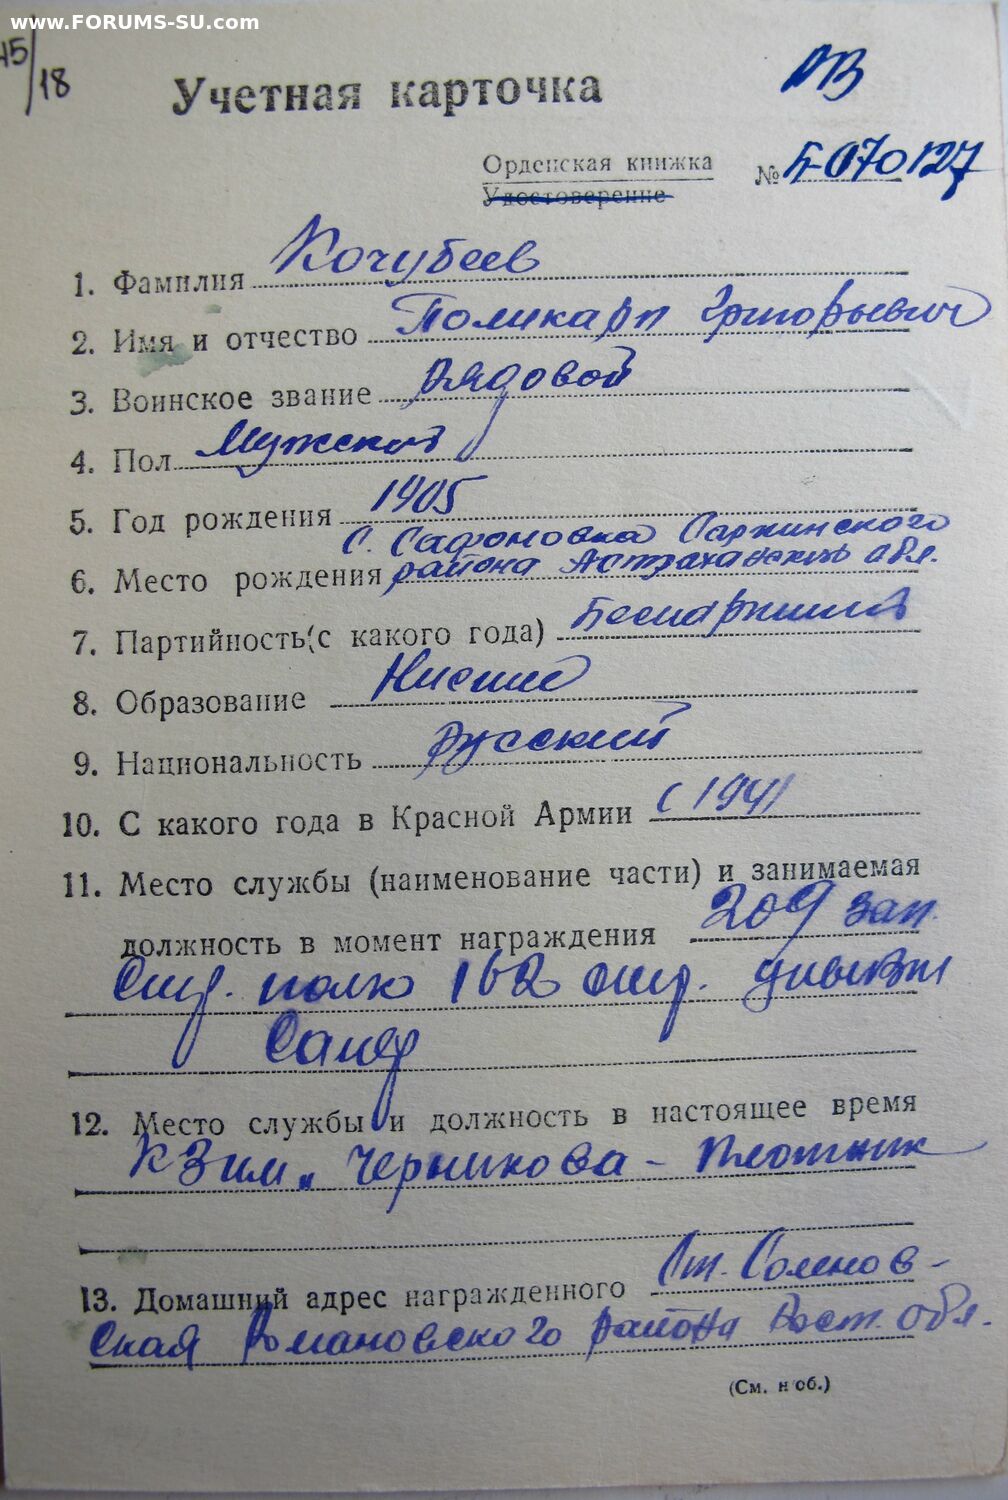 www.FORUMS-SU.com
45/18
Учетная карточка
Орденская книжка № Б-070127
Удостоверение
1. Фамилия Кочубеев
2. Имя и отчество Поликарп Григорьевич
3. Воинское звание Рядовой
4. Пол Мужской
5. Год рождения 1905
с. Сафоновка Сарпинского
6. Место рождения района Астраханской обл.
7. Партийность (с какого года) Беспартийный
8. Образование Низшее
9. Национальность Русский
10. С какого года в Красной Армии С 1941
11. Место службы (наименование части) и занимаемая
должность в момент награждения 209 зап.
стр. полк 162 стр. дивизии
Сапер
12. Место службы и должность в настоящее время
К-З им. "Черникова - плотник
13. Домашний адрес награжденного Ст. Соленов-
ская Романовского района Рост. обл.
(См. н об.)